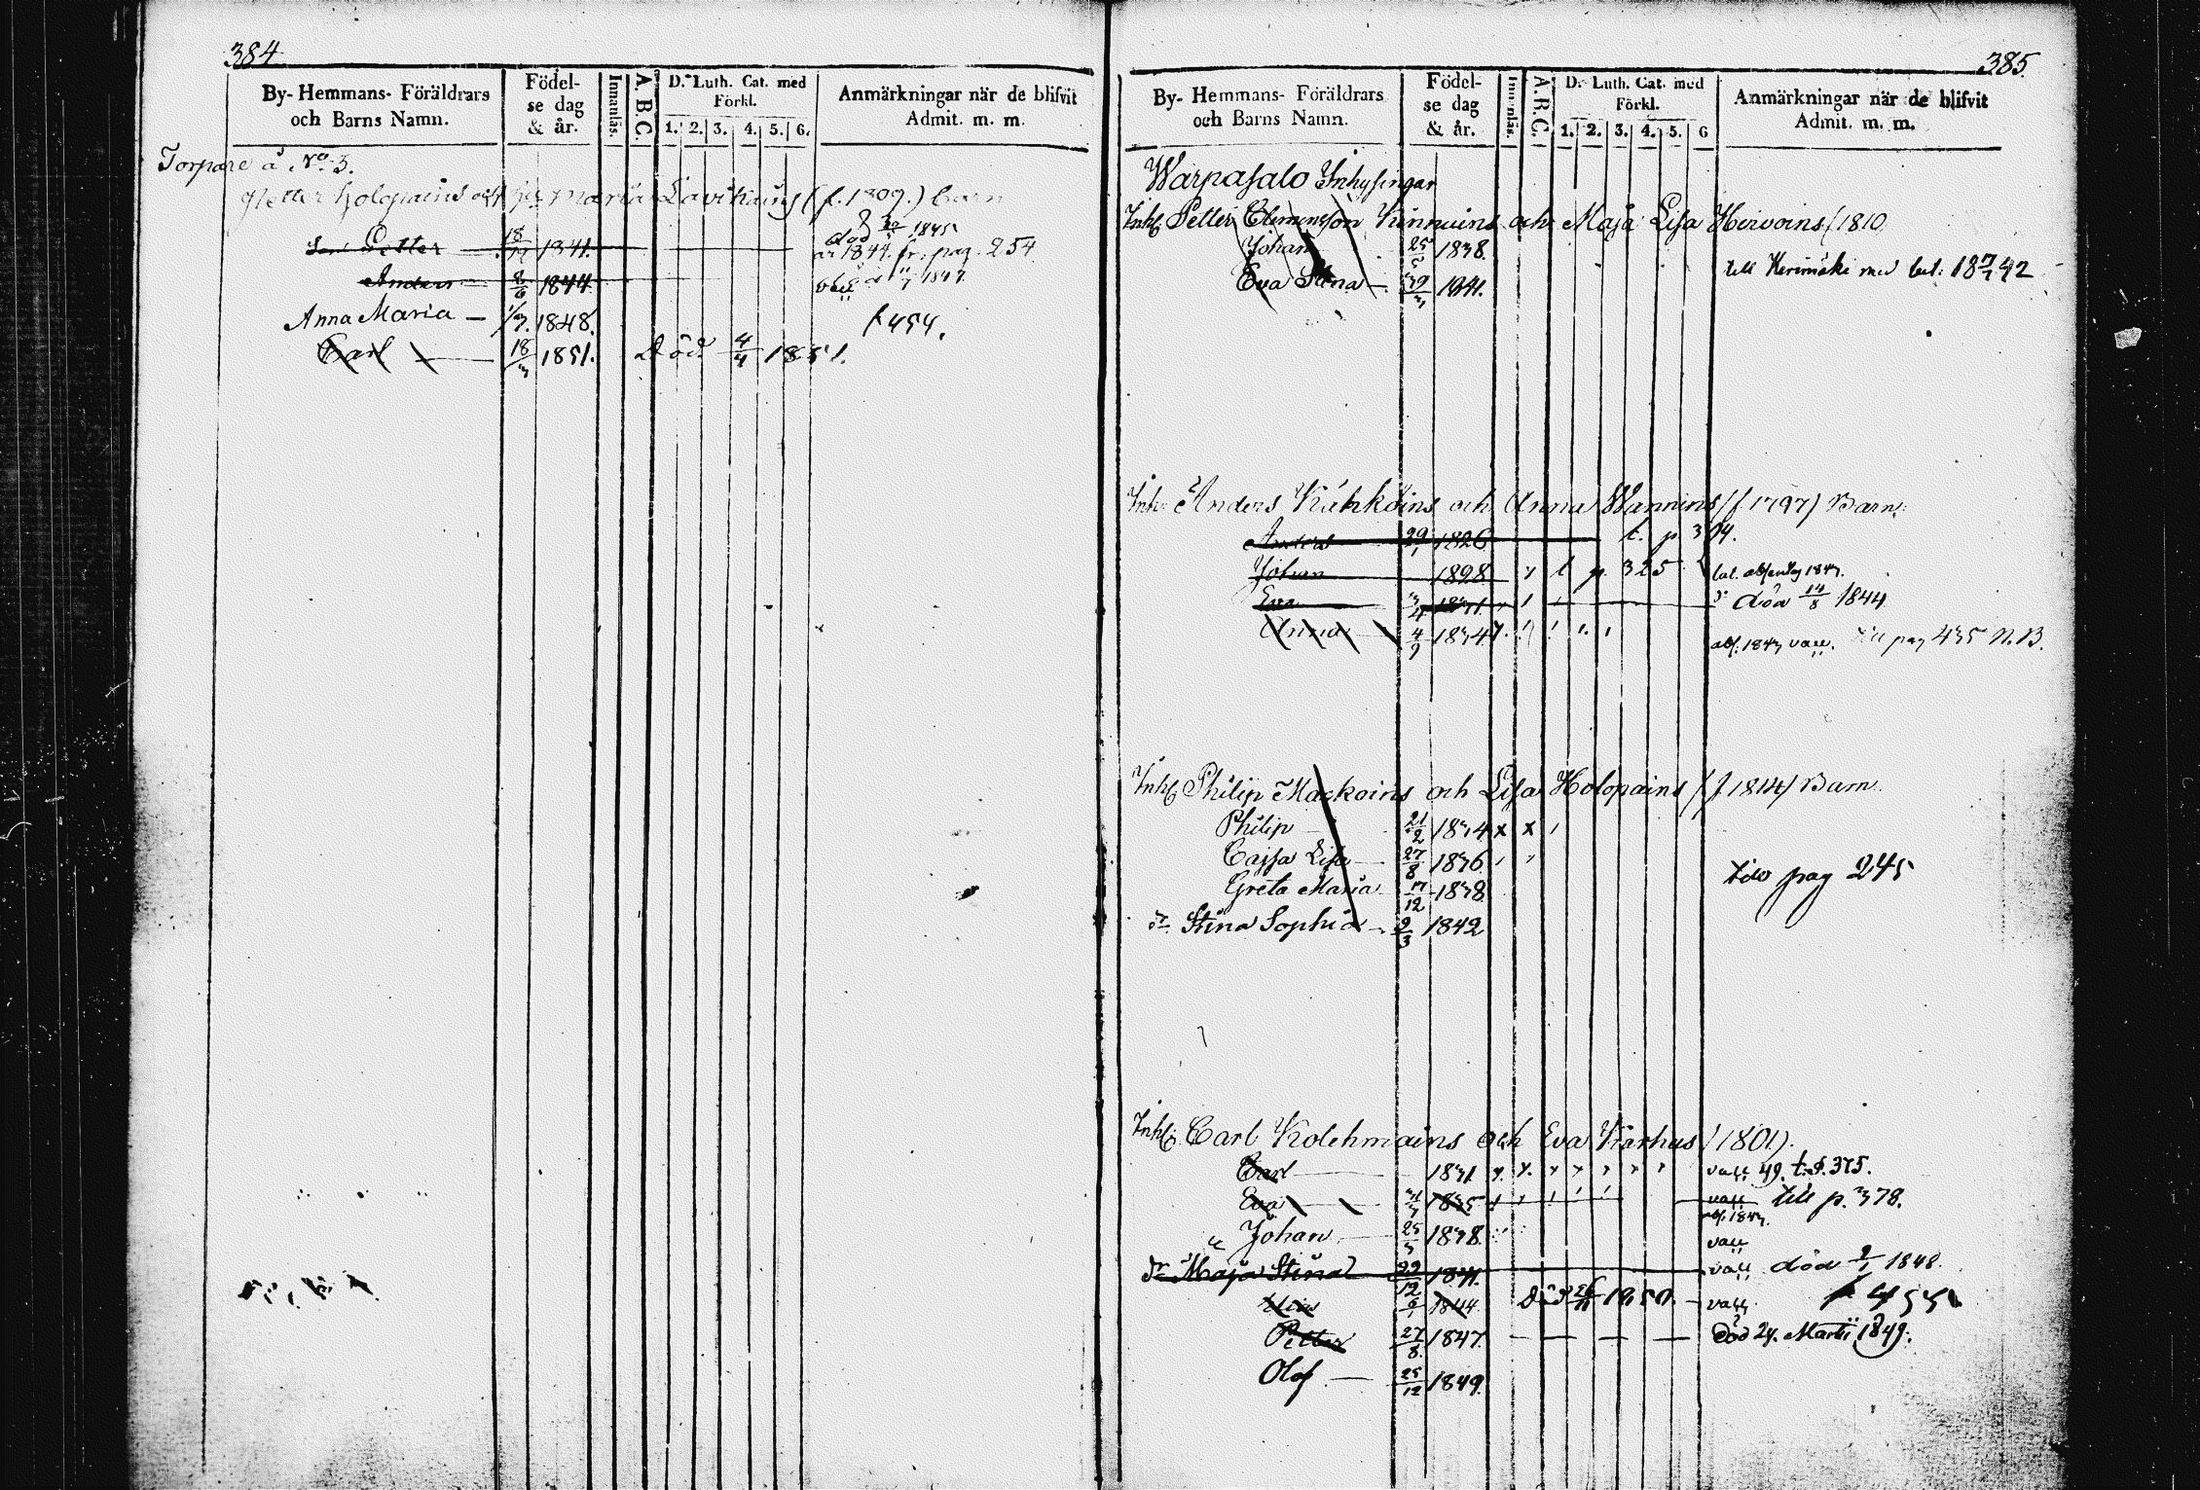 384
By- Hemmans- Föräldrars och Barns Namn.
Födelse dag & år.
Innanläs.
A. B. C.
D. Luth. Cat. med Förkl.
1. 2. 3. 4. 5. 6.
Anmärkningar när de blifvit Admit. m. m.
Torpare å No 3.
Petter Holopains och Maria Lavikains (f. 1809.) barn
Petter 1841. död 1845
1844. fr. pag. 254
Anders 8/6 1844. vacc 1847
Anna Maria — 1/7. 1848. f 454.
Carl — 18/3 1851. Död. 4/4 1851.
385.
By- Hemmans- Föräldrars och Barns Namn.
Födelse dag & år.
Innanläs.
A. B. C.
D. Luth. Cat. med Förkl.
1. 2. 3. 4. 5. 6
Anmärkningar när de blifvit Admit. m. m.
Warpasalo Inhysingar
Inh. Petter Clemensson Kinnuins och Maja Lisa Hirvoins (1810
Johan 25/5 1838.
Eva Stina — 1841. till Kerimäki med bet: 42
Inh. Anders Kähköins och Anna Wannins (f. 1797) Barn:
Anders 29/1 1826 t. p 394.
Johan 1828 t p. 325
Eva död 14/8 1844
Anna 4/9 1834 vacc. pag 435 N.B.
Inh. Philip Mackoins och Lisa Holopains (f 1814) Barn.
Philip 21/2 1834 x x
Cajsa Lisa 27/8 1836
Greta Maria 17/12 1838 pag 245
Stina Sophia — 2/3 1842
Inh. Carl Kolehmains och Eva Karhus (1801).
Carl 1831 vacc 49. t. p. 375.
Eva 1835 vacc till p. 378.
Johan 25/3 1838. vacc
Maja Stina 29/12 1841. vacc död 2/1 1848.
6/1 1844 Död 1850. — vacc f 455
Petter 27/8 1847. — — — — död 24. Martii 1849.
Olof — 25/12 1849.